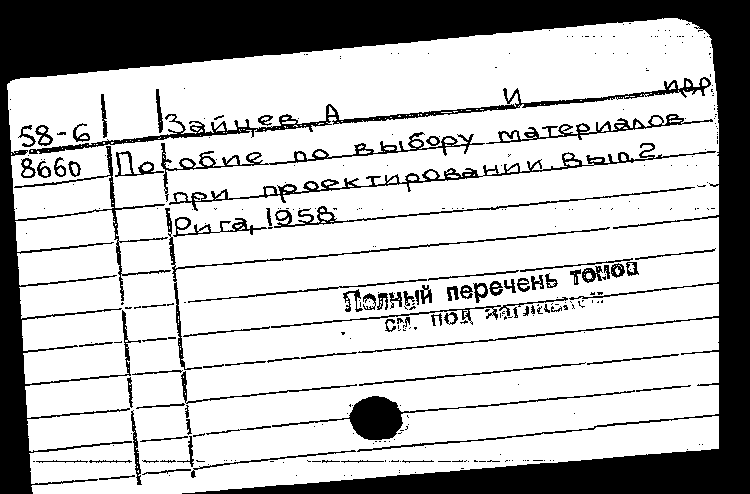 58-6 Зайцев, А И и др
8660 Пособие по выбору материалов
при проектировании. Вып. 2.
Рига, 1958
Полный перечень томов
см. под заглавием